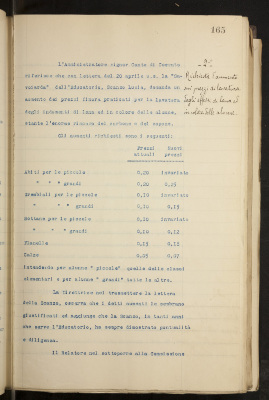 165
L'Amministratore signor Conte di Ceconio
riferisce che con lettera del 20 aprile c.a. la "Do-
dell'Educatorio, Scanzo Lucia, domanda un
aumento dei prezzi finora praticati per la lavatura
degli indumenti di lana ed in colore delle alunne,
stante l'enorme rincaro del carbone e del sapone.
Gli aumenti richiesti sono i seguenti:
Prezzi Nuovi
attuali prezzi
Abiti per le piccole 0,20 invariato
" " " grandi 0,20 0,25
Grembiuli per le piccole 0,10 invariato
" " " grandi 0,10 0,15
Sottane per le piccole 0,10 invariato
" " " grandi 0,10 0,12
Flanelle 0,15
Calze 0,05 0,07
intendendo per alunne " piccole" quelle delle classi
elementari e per alunne " grandi" tutte le altre.
La Direttrice nel trasmettere la lettera
della Scanzo, osserva che i detti aumenti le sembrano
giustificati ed aggiunge che la Scanzo, in tanti anni
che serve l'Educatorio, ha sempre dimostrato puntualità
e diligenza.
Il Relatore nel sottoporre alla Commissione